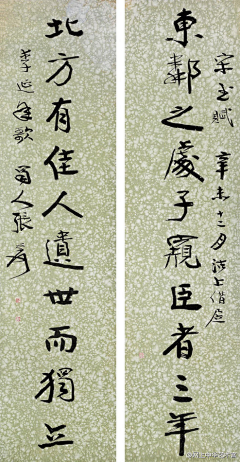 東鄰之處子窺臣者三年
宋玉賦 辛未十二月 海上借庭
北方有佳人遺世而獨立
李延年歌 蜀人張爰